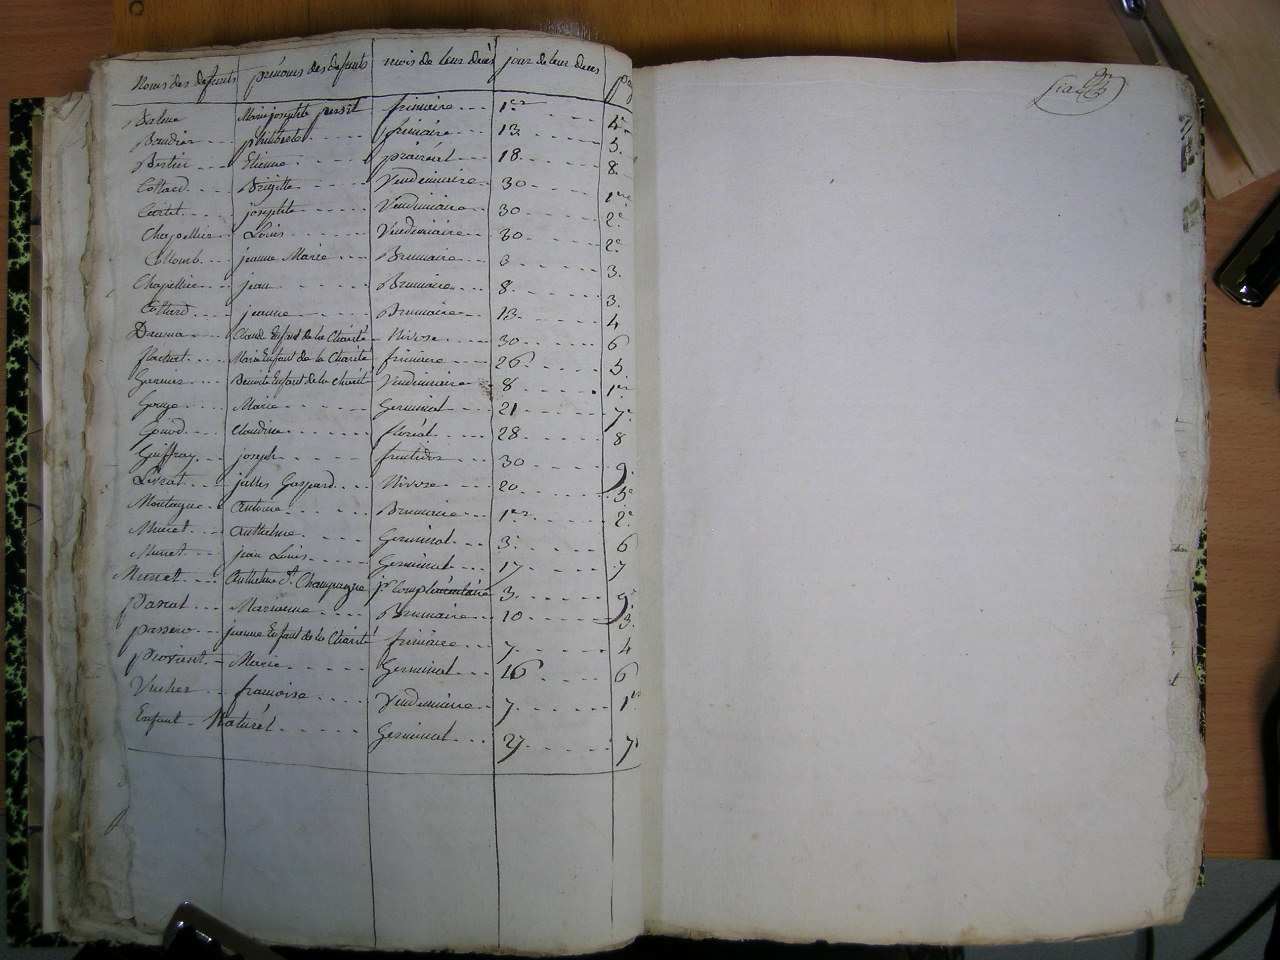 Noms des defunts prénoms des defunts mois de leur decès jour de leur deces pag
Marie josephte frimaire 1er 4e
Baudier philiberte frimaire 13 5.
Bertier Etienne prairéal 18 8.
Collard Brigitte Vendemiaire 30 1ere
Cartet josephte Vendemiaire 30 2e
Chapellier Louis Vendemiaire 30 2e
Collomb jeanne Marie Brumaire 3 3.
Chapellier jean Brumaire 8 3.
Collard jeanne Brumaire 13 4
Claude Enfant de la Charité Nivose 30 6
flachat Marie Enfant de la Charité frimaire 26 5
Garnier Benoite Enfant de la Charité Vendemiaire 8 1er
Gouge Marie Germinal 21 7e
Gonod Claudine floréal 28 8
Guiffray joseph fructidor 30 9.
Livrat julles Gaspard Nivose 20 5e
Montagne Antoine Brumaire 1er 2e
Muret Anthelme Germinal 3 6
Muret jean Louis Germinal 17 7
Muret Anthelme d. Champagne jr Complémentaire 3 9e
pascal Marianne Brumaire 10 3.
passero jeanne Enfant de la Charité frimaire 7 4
provent Marie Germinal 16 6
Vucher francoise Vendemiaire 7 1er
Enfant Naturél Germinal 27 7e